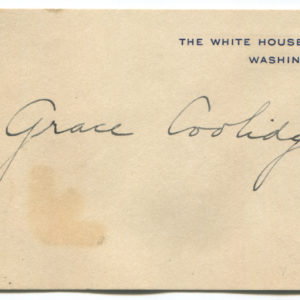 THE WHITE HOUSE
WASHIN
Grace Coolidg